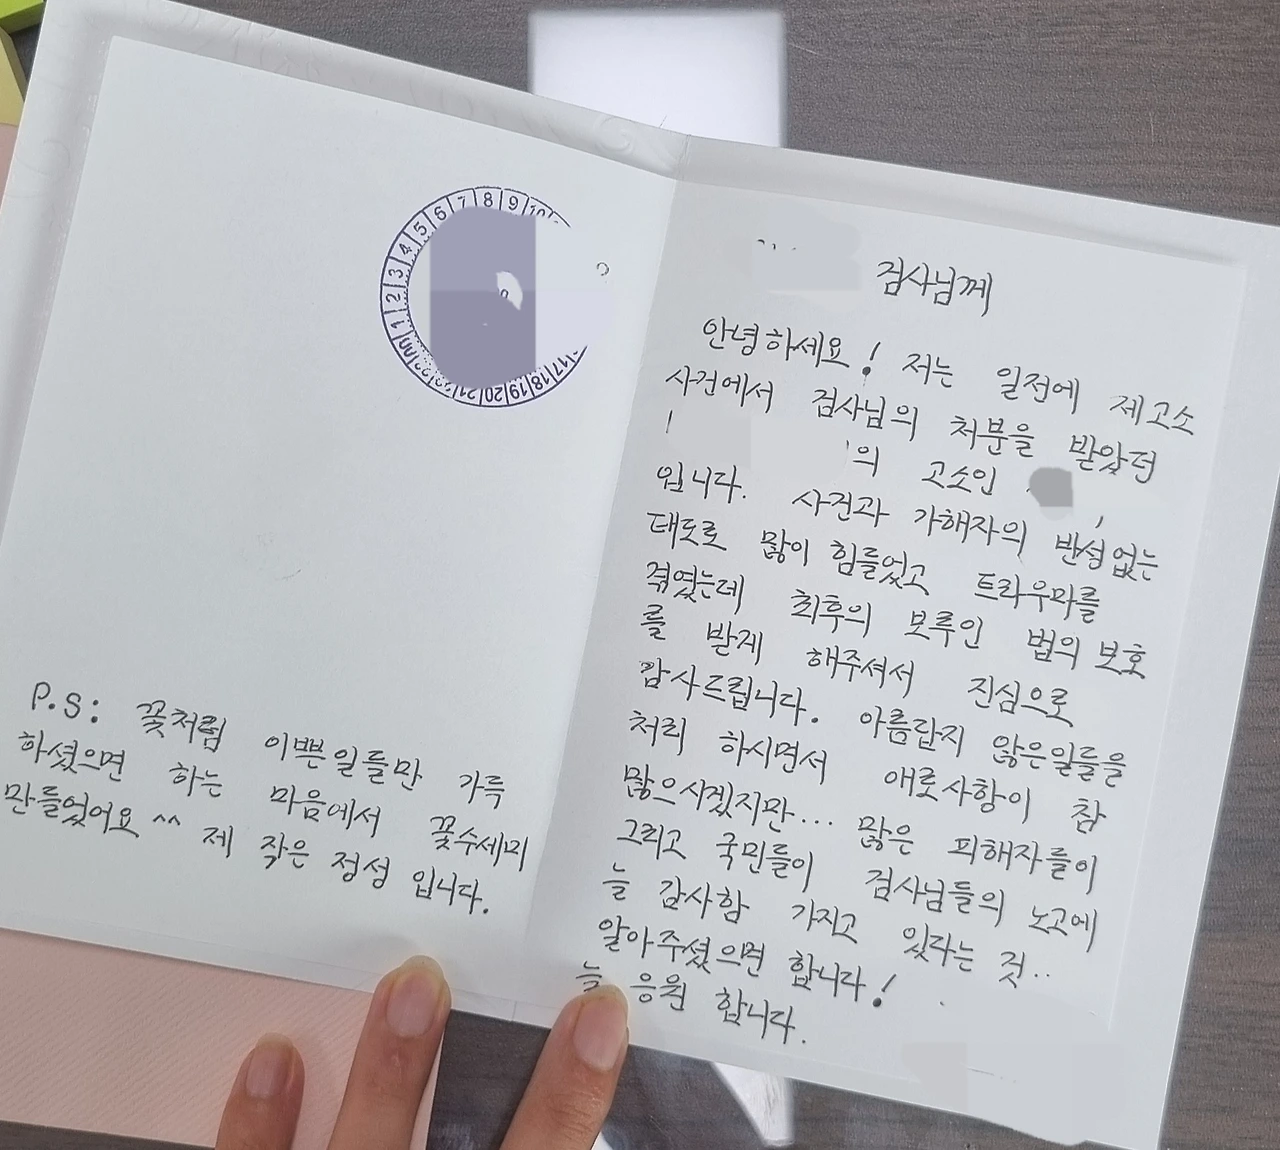 1 2 3 4 5 6 7 8 9 10
17 18 19 20 21
P.S: 꽃처럼 이쁜일들만 가득
하셨으면 하는 마음에서 꽃수세미
만들었어요 ^^ 제 작은 정성 입니다.
검사님께
안녕하세요! 저는 일전에 제고소
사건에서 검사님의 처분을 받았던
의 고소인
입니다. 사건과 가해자의 반성없는
태도로 많이 힘들었고 트라우마를
겪였는데 최후의 보루인 법의 보호
를 받게 해주셔서 진심으로
감사드립니다. 아름답지 않은일들을
처리 하시면서 애로사항이 참
많으시겠지만... 많은 피해자들이
그리고 국민들이 검사님들의 노고에
늘 감사함 가지고 있다는 것..
알아주셨으면 합니다!
늘 응원 합니다.